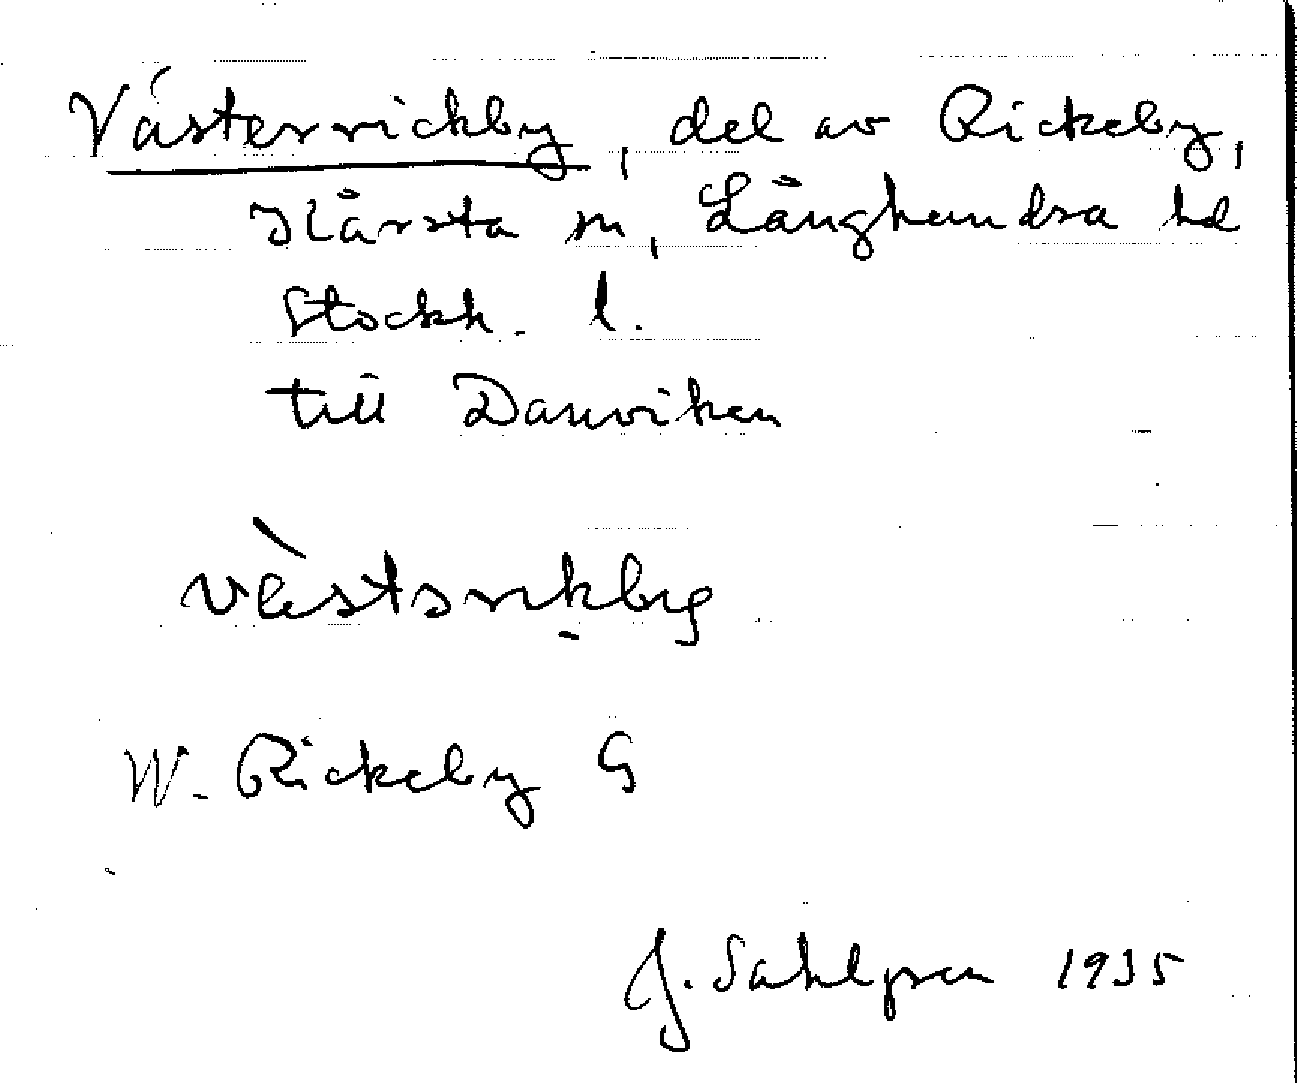 Västerrickby, del av Rickeby,
Kårsta sn, Långhundra hd
Stockh. l.
till Danviken
västərikby
W. Rickeby G
J. Sahlgren 1935